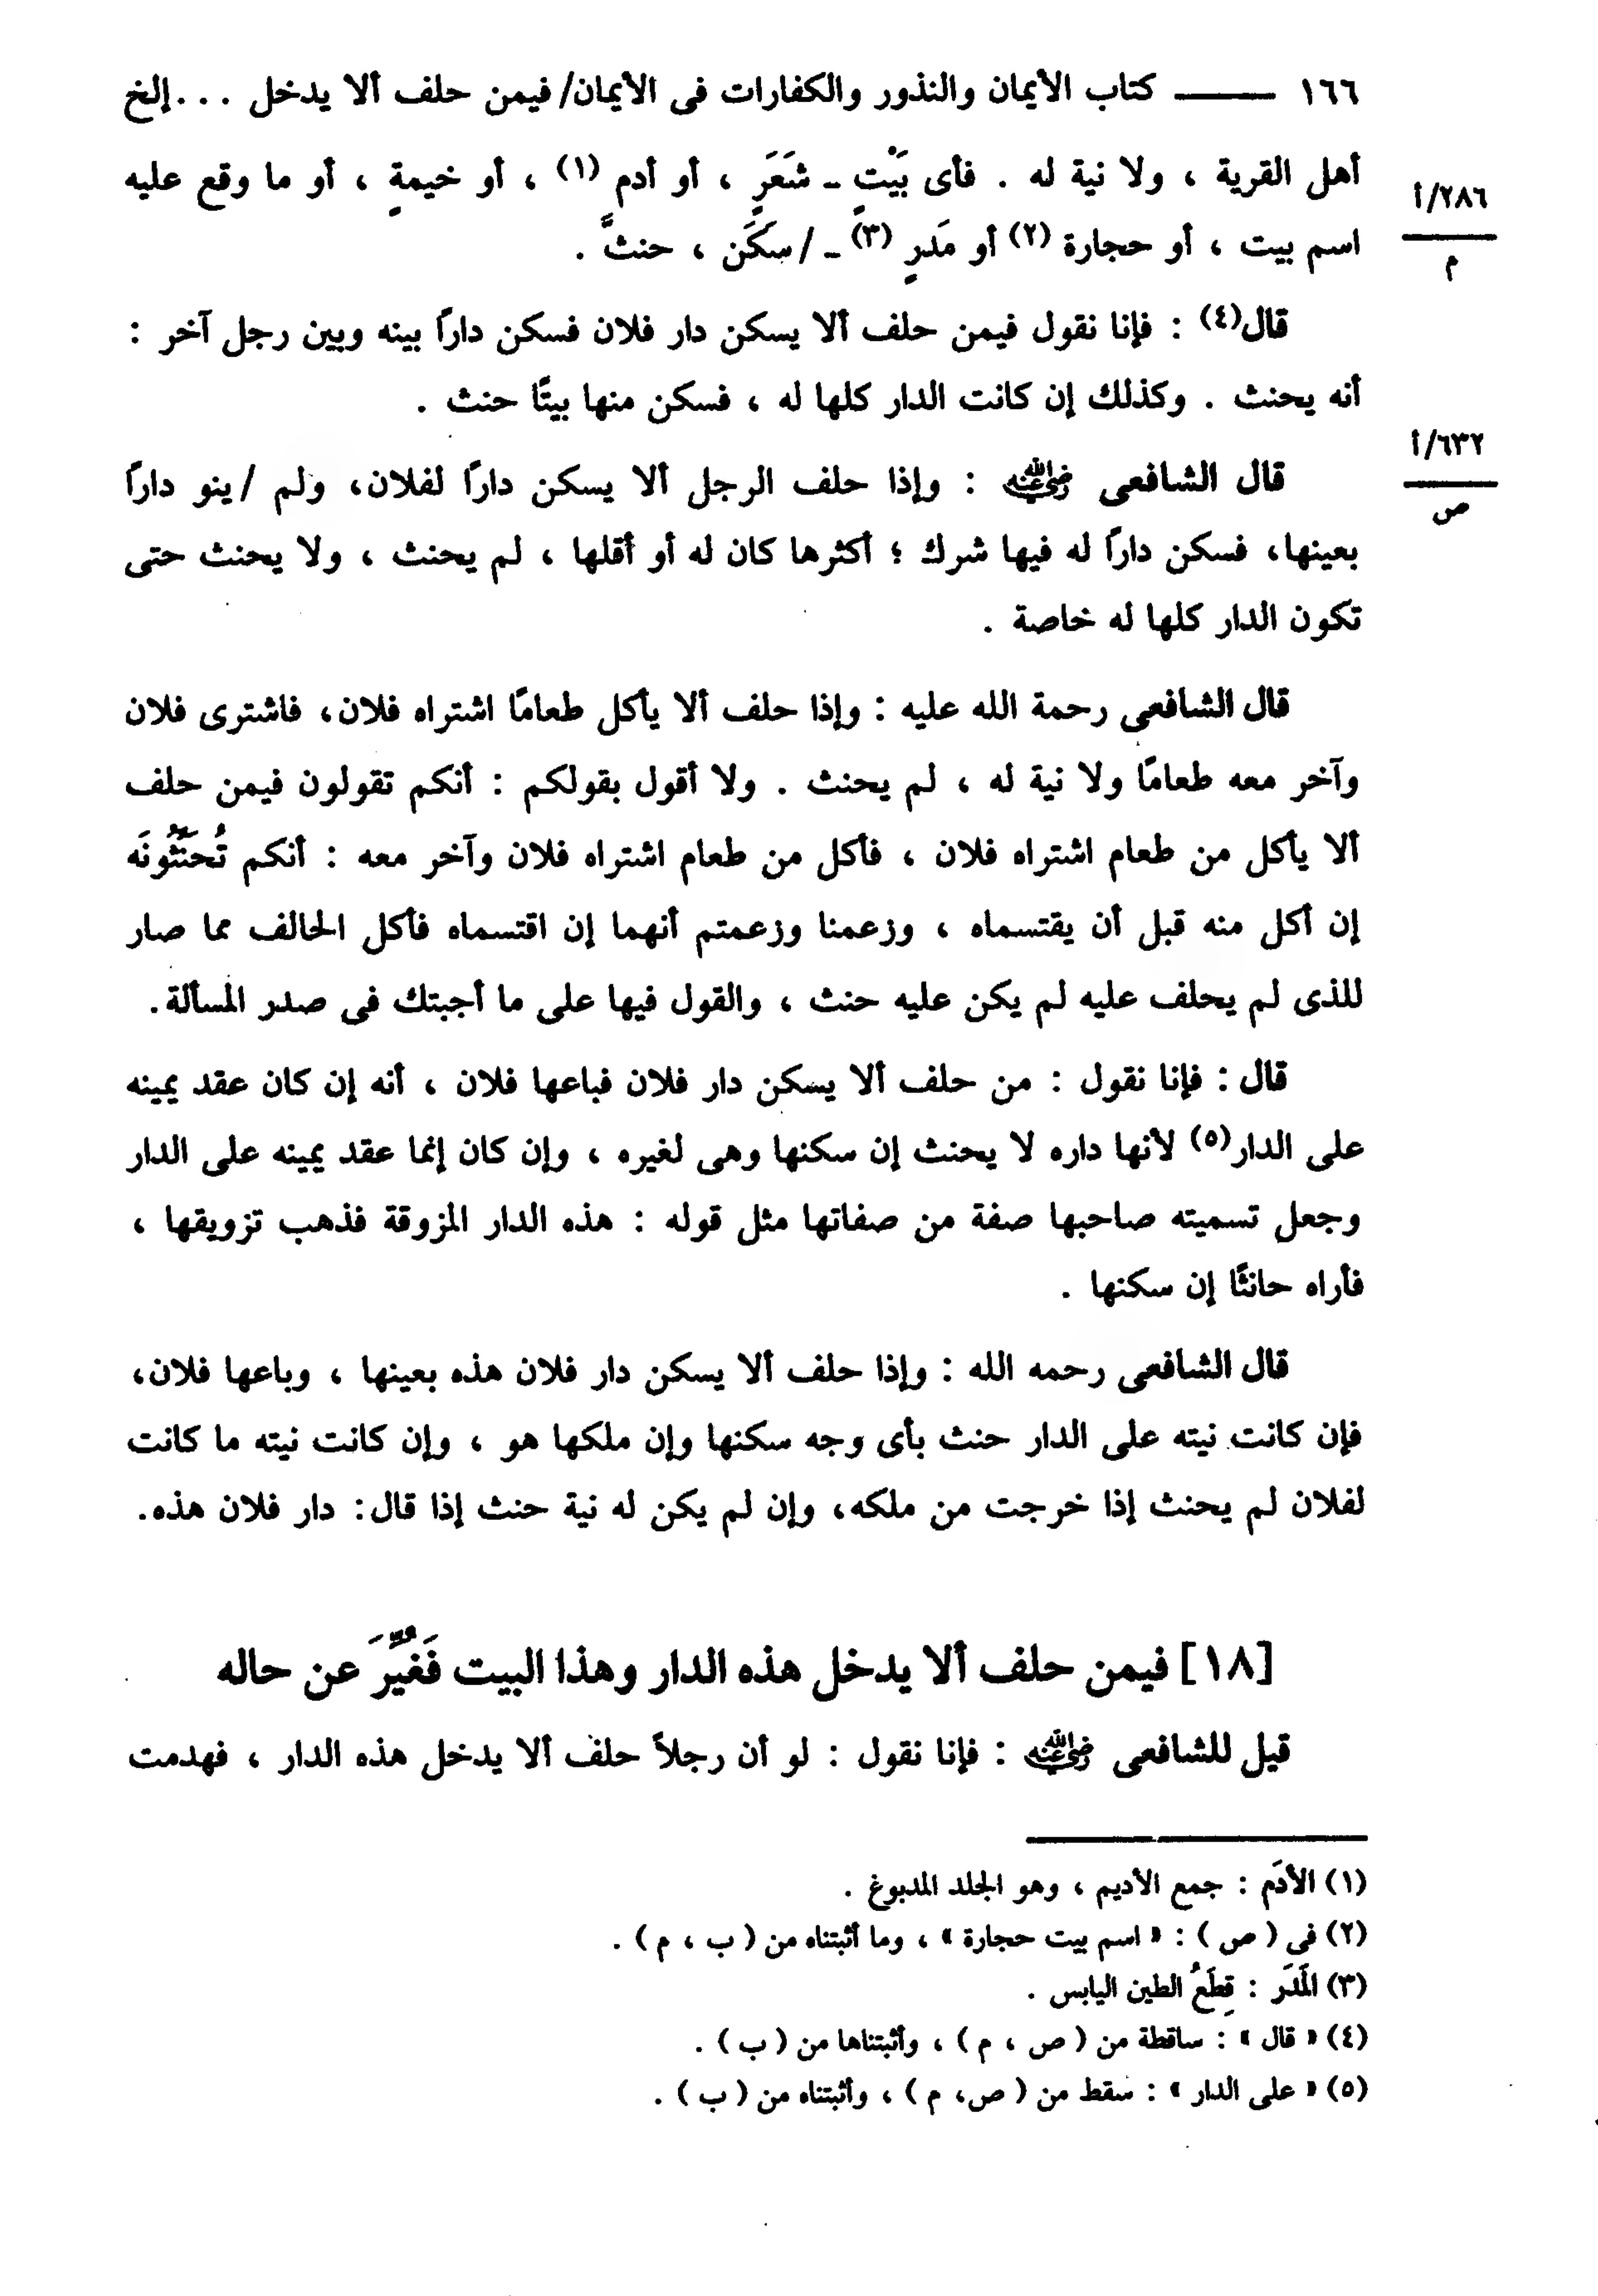 ١٦٦ ــــــ كتاب الأيمان والنذور والكفارات فى الأيمان/فيمن حلف ألا يدخل . . . إلخ
أهل القرية ، ولا نية له . فأى بَيْتٍ ـ شَعَرٍ ، أو أدم (١) ، أو خيمةٍ ، أو ما وقع عليه
٢٨٦/أ
م
اسم بيت ، أو حجارة (٢) أو مَدرٍ (٣) ـ /سَكَن ، حنث .
قال(٤) : فإنا نقول فيمن حلف ألا يسكن دار فلان فسكن دارًا بينه وبين رجل آخر :
أنه يحنث . وكذلك إن كانت الدار كلها له ، فسكن منها بيتًا حنث .
٦٣٢/أ
ص
قال الشافعى رضي الله عنه : وإذا حلف الرجل ألا يسكن دارًا لفلان، ولم /ينو دارًا
بعينها، فسكن دارًا له فيها شرك ؛ أكثرها كان له أو أقلها ، لم يحنث ، ولا يحنث حتى
تكون الدار كلها له خاصة .
قال الشافعى رحمة الله عليه : وإذا حلف ألا يأكل طعامًا اشتراه فلان، فاشترى فلان
وآخر معه طعامًا ولا نية له ، لم يحنث . ولا أقول بقولكم : أنكم تقولون فيمن حلف
ألا يأكل من طعام اشتراه فلان ، فأكل من طعام اشتراه فلان وآخر معه : أنكم تُحَنِّثُونَه
إن أكل منه قبل أن يقتسماه ، وزعمنا وزعمتم أنهما إن اقتسماه فأكل الحالف مما صار
للذى لم يحلف عليه لم يكن عليه حنث ، والقول فيها على ما أجبتك فى صدر المسألة.
قال : فإنا نقول : من حلف ألا يسكن دار فلان فباعها فلان ، أنه إن كان عقد يمينه
على الدار(٥) لأنها داره لا يحنث إن سكنها وهى لغيره ، وإن كان إنما عقد يمينه على الدار
وجعل تسميته صاحبها صفة من صفاتها مثل قوله : هذه الدار المزوقة فذهب تزويقها ،
فأراه حانثًا إن سكنها .
قال الشافعى رحمه الله : وإذا حلف ألا يسكن دار فلان هذه بعينها ، وباعها فلان،
فإن كانت نيته على الدار حنث بأى وجه سكنها وإن ملكها هو ، وإن كانت نيته ما كانت
لفلان لم يحنث إذا خرجت من ملكه، وإن لم يكن له نية حنث إذا قال: دار فلان هذه.
[١٨] فيمن حلف ألا يدخل هذه الدار وهذا البيت فَغُيِّرَ عن حاله
قيل للشافعى رضي الله عنه : فإنا نقول : لو أن رجلاً حلف ألا يدخل هذه الدار ، فهدمت
(١) الأدَم : جمع الأديم ، وهو الجلد المدبوغ .
(٢) فى ( ص ) : « اسم بيت حجارة » ، وما أثبتناه من ( ب ، م ) .
(٣) المَدَر : قِطَعُ الطين اليابس .
(٤) « قال » : ساقطة من ( ص ، م ) ، وأثبتناها من ( ب ) .
(٥) « على الدار » : سقط من ( ص، م ) ، وأثبتناه من ( ب ) .